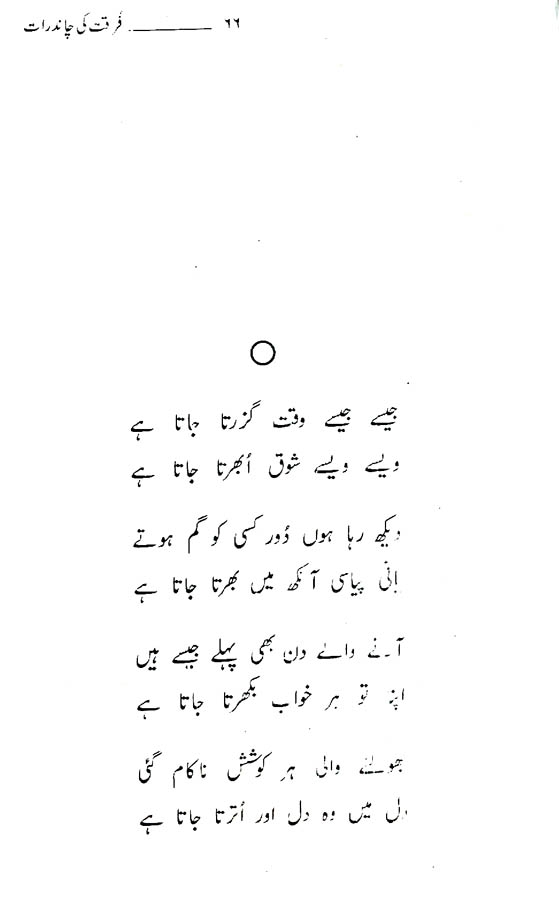 ۶۶ ــــــــــــ فُرقت کی چاند رات
جیسے جیسے وقت گزرتا جاتا ہے
ویسے ویسے شوق اُبھرتا جاتا ہے
دیکھ رہا ہوں دُور کسی کو گم ہوتے
پیاسی آنکھ میں بھرتا جاتا ہے
آنے والے دن بھی پہلے جیسے ہیں
اپنا تو ہر خواب بکھرتا جاتا ہے
بھولنے والی ہر کوشش ناکام گئی
دل میں وہ دل اور اُترتا جاتا ہے